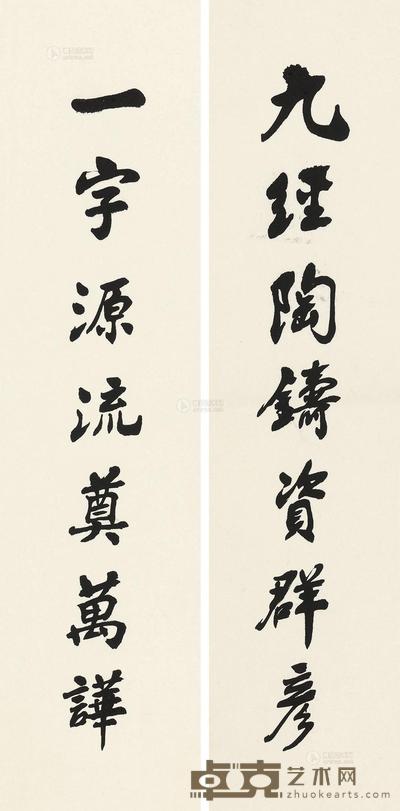 九經陶鑄資群彥
一字源流奠萬譁
卓克艺术网
zhuokearts.com